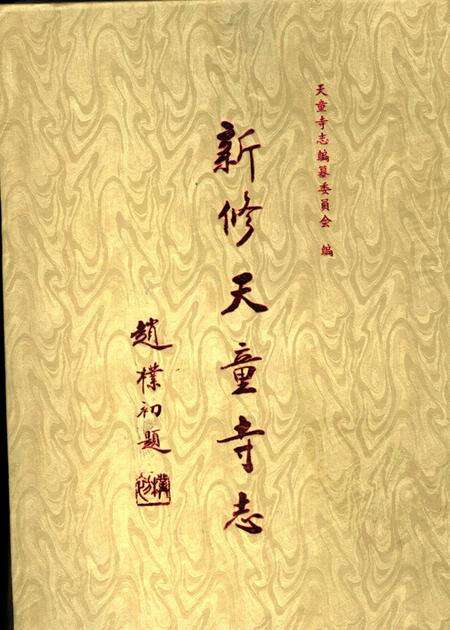 天童寺志編纂委員会 編
新修天童寺志
趙樸初題
樸初